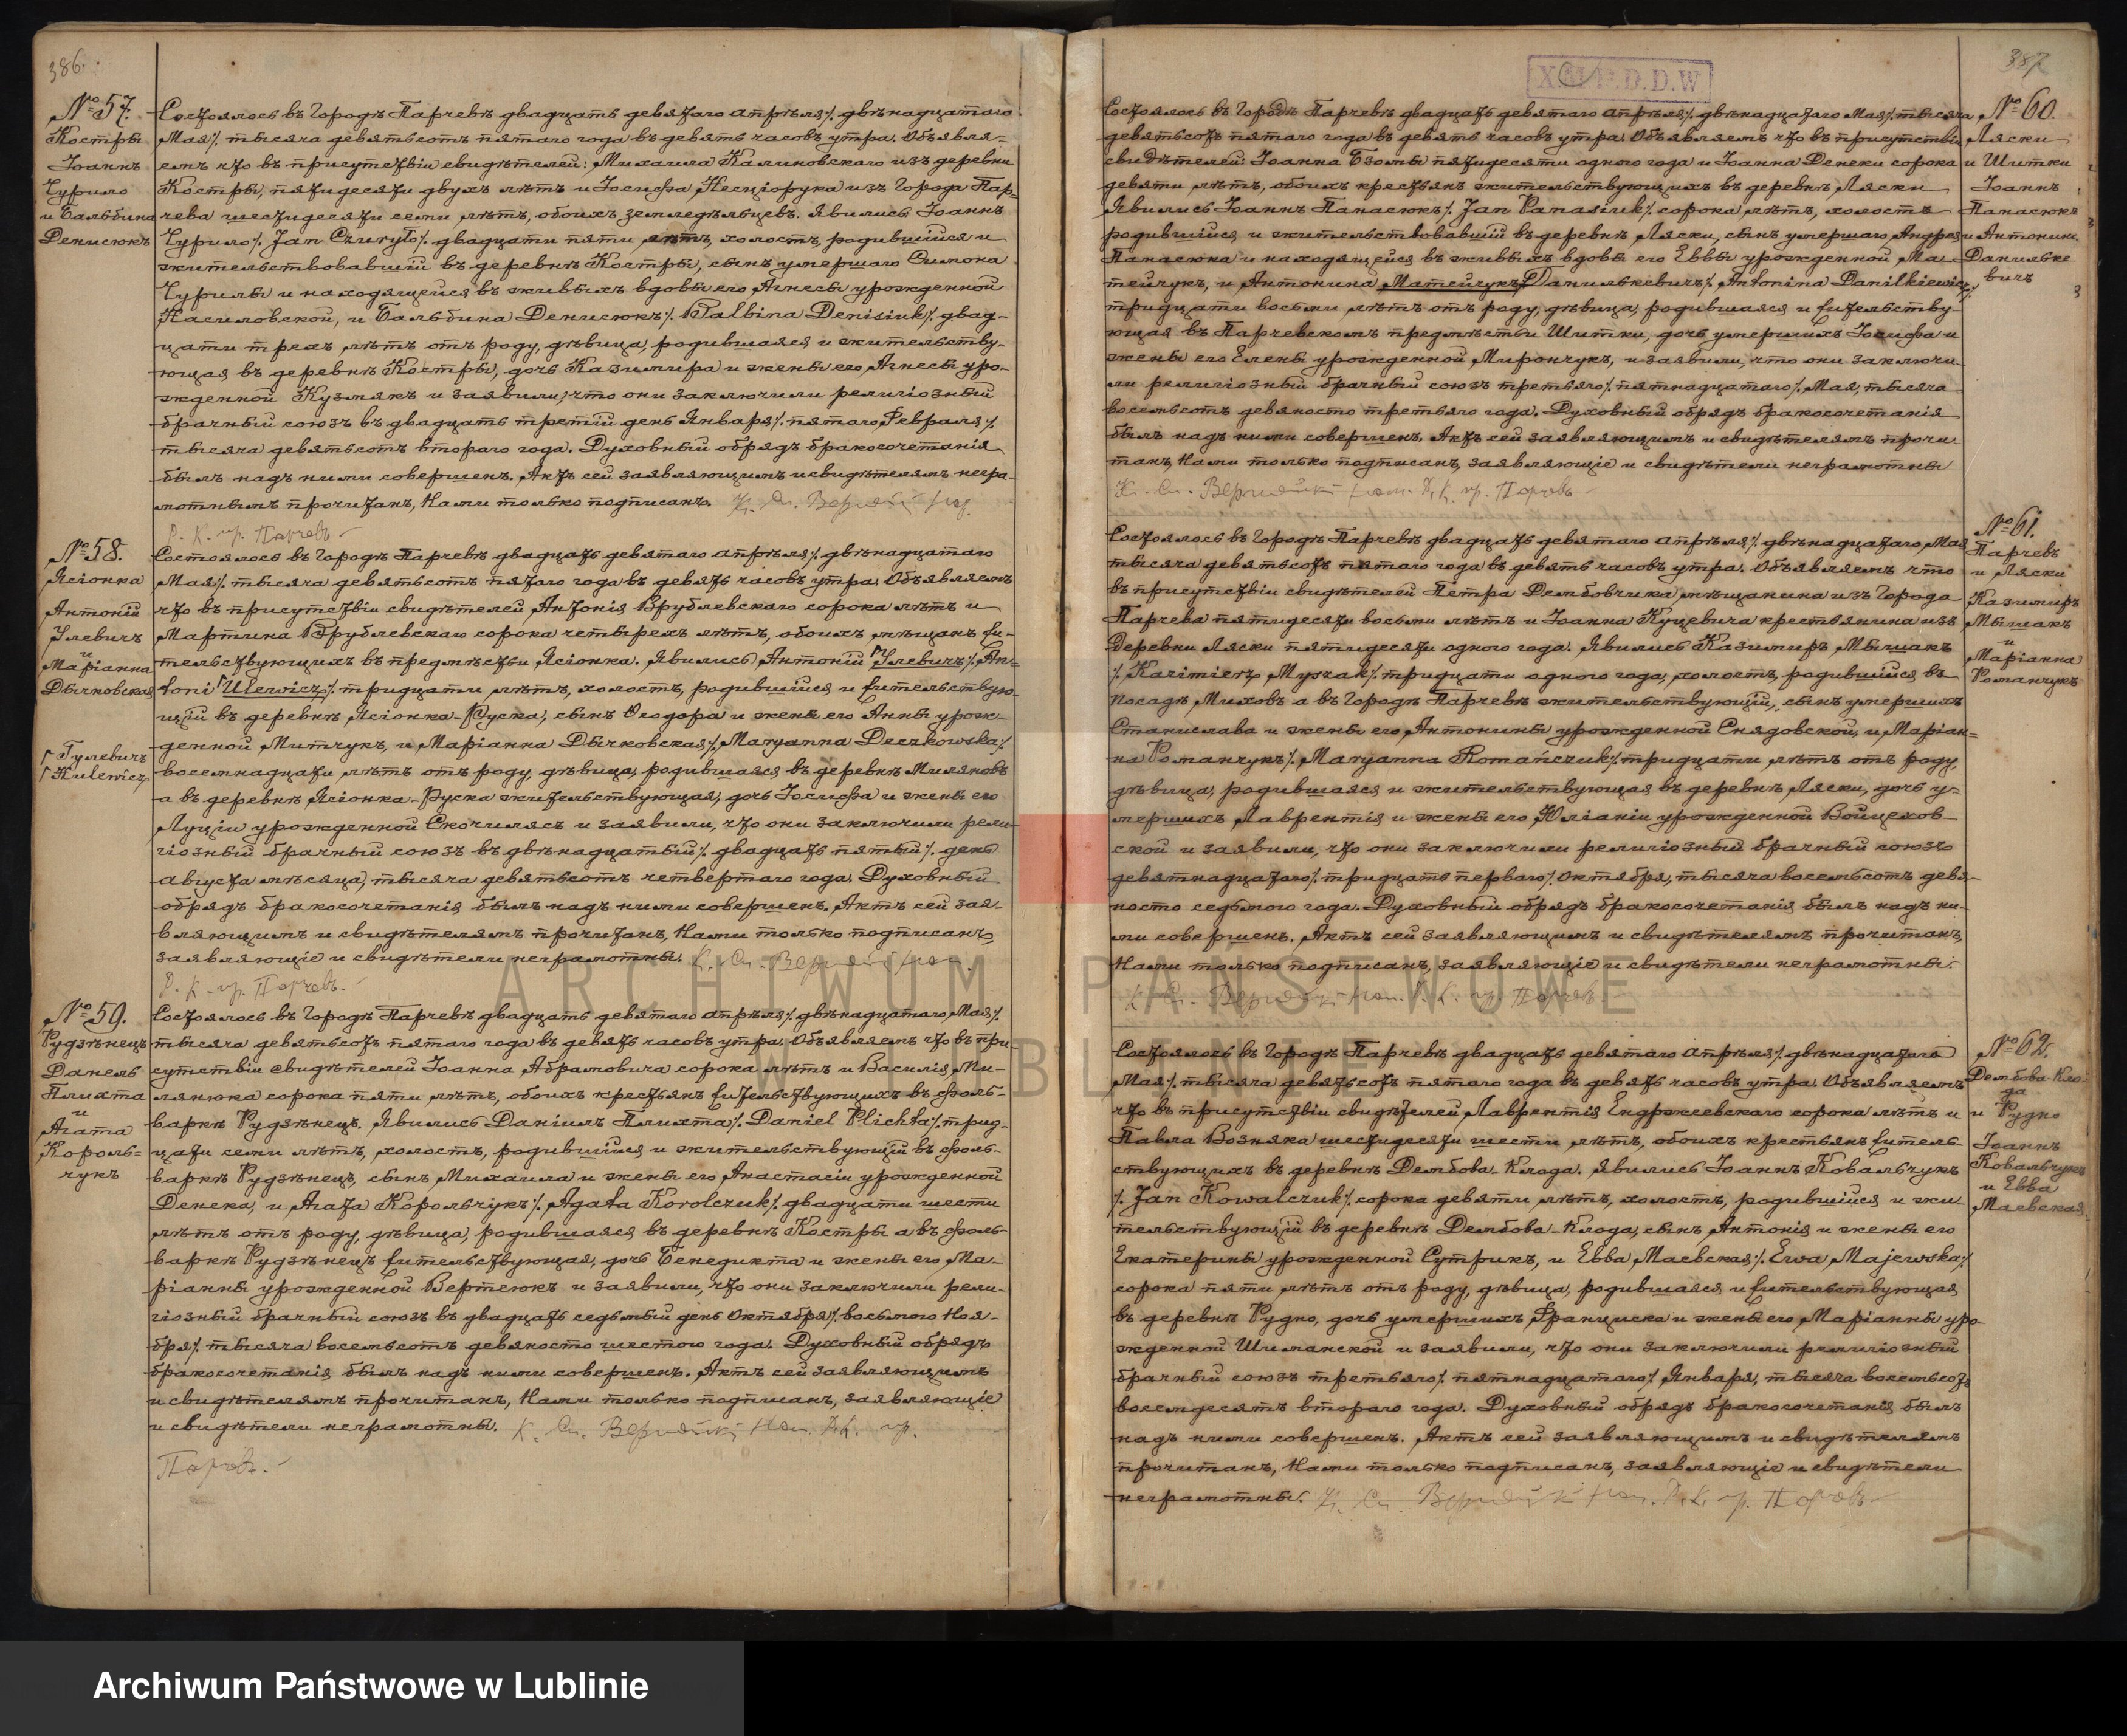 386.
№ 57.
Костры
Іоаннъ
Чурило
и Бальбина
Денисюкъ
Состоялось въ городѣ Парчевѣ двадцать девятаго апрѣля /: двѣнадцатаго
Мая /: тысяча девятьсотъ пятаго года въ девять часовъ утра. Объявля-
емъ что въ присутствіи свидѣтелей: Михаила Калиновскаго изъ деревни
Костры, пятидесяти двухъ лѣтъ и Іосифа Несціорука изъ города Пар-
чева шестидесяти семи лѣтъ, обоихъ земледѣльцевъ. Явились Іоаннъ
Чурило /: Jan Czuryło /: двадцати пяти лѣтъ, холостъ, родившійся и
жительствовавшій въ деревнѣ Костры, сынъ умершаго Симона
Чурилы и находящейся въ живыхъ вдовы его Агнесы урожденной
Насиловской, и Бальбина Денисюкъ /: Balbina Denisiuk /: двад-
цати трехъ лѣтъ отъ роду, дѣвица, родившаяся и жительству-
ющая въ деревнѣ Костры, дочь Казимира и жены его Агнесы уро-
жденной Кузмякъ и заявили, что они заключили религіозный
брачный союзъ въ двадцать третій день Января /: пятаго Февраля /:
тысяча девятьсотъ втораго года. Духовный обрядъ бракосочетанія
былъ надъ ними совершенъ. Актъ сей заявляющимъ и свидѣтелямъ негра-
мотнымъ прочитанъ, Нами только подписанъ.
Р. К. пр. Парчевъ
№ 58.
Ясіонка
Антоній
Улевичъ
и
Маріанна
Дычковская
Гулевичъ
Hulewicz
Состоялось въ городѣ Парчевѣ двадцать девятаго апрѣля /: двѣнадцатаго
Мая /: тысяча девятьсотъ пятаго года въ девять часовъ утра. Объявляемъ
что въ присутствіи свидѣтелей Антонія Врублевскаго сорока лѣтъ и
Мартина Врублевскаго сорока четырехъ лѣтъ, обоихъ мѣщанъ жи-
тельствующихъ въ предмѣстьи Ясіонка. Явились Антоній Улевичъ /: An-
toni Ulewicz /: тридцати лѣтъ, холостъ, родившійся и жительствую-
щій въ деревнѣ Ясіонка-Руска, сынъ Ѳеодора и жены его Анны урож-
денной Митчукъ, и Маріанна Дычковская /: Maryanna Deczkowska /:
восемнадцати лѣтъ отъ роду, дѣвица, родившаяся въ деревнѣ Миляновъ
а въ деревнѣ Ясіонка-Руска жительствующая, дочь Іосифа и жены его
Луціи урожденной Скочилясъ и заявили, что они заключили рели-
гіозный брачный союзъ въ двѣнадцатый /: двадцать пятый /: день
августа мѣсяца, тысяча девятьсотъ четвертаго года. Духовный
обрядъ бракосочетанія былъ надъ ними совершенъ. Актъ сей зая-
вляющимъ и свидѣтелямъ прочитанъ, Нами только подписанъ,
заявляющіе и свидѣтели неграмотны.
Р. К. пр. Парчевъ.
№ 59.
Рудзѣнецъ
Данель
Плихта
и
Агата
Король-
чукъ
Состоялось въ городѣ Парчевѣ двадцать девятаго апрѣля /: двѣнадцатаго Мая /:
тысяча девятьсотъ пятаго года въ девять часовъ утра. Объявляемъ что въ при-
сутствіи свидѣтелей Іоанна Абрамовича сорока лѣтъ и Василія Ми-
лянюка сорока пяти лѣтъ, обоихъ крестьянъ жительствующихъ въ фоль-
варкѣ Рудзѣнецъ. Явились Даніилъ Плихта /: Daniel Plichta /: трид-
цати семи лѣтъ, холостъ, родившійся и жительствующій въ фоль-
варкѣ Рудзѣнецъ, сынъ Михаила и жены его Анастасіи урожденной
Денека, и Агата Корольчукъ /: Agata Korolczuk /: двадцати шести
лѣтъ отъ роду, дѣвица, родившаяся въ деревнѣ Костры а въ фоль-
варкѣ Рудзѣнецъ жительствующая, дочь Бенедикта и жены его Ма-
ріанны урожденной Вертеюкъ и заявили, что они заключили рели-
гіозный брачный союзъ въ двадцать седьмый день Октября /: восьмого Ноя-
бря /: тысяча восемьсотъ девяносто шестого года. Духовный обрядъ
бракосочетанія былъ надъ ними совершенъ. Актъ сей заявляющимъ
и свидѣтелямъ прочитанъ, Нами только подписанъ, заявляющіе
и свидѣтели неграмотны.
Парчевъ.
387
№ 60.
Ляски
и Шитки
Іоаннъ
Панасюкъ
и Антонина
Данильке
вичъ
Состоялось въ городѣ Парчевѣ двадцать девятаго апрѣля /: двѣнадцатаго Мая /: тысяча
девятьсотъ пятаго года въ девять часовъ утра. Объявляемъ что въ присутствіи
свидѣтелей: Іоанна Бзомы пятидесяти одного года и Іоанна Денеки сорока
девяти лѣтъ, обоихъ крестьянъ жительствующихъ въ деревнѣ Ляски
Явились Іоаннъ Панасюкъ /: Jan Panasiuk /: сорока лѣтъ, холостъ
родившійся и жительствовавшій въ деревнѣ Ляски, сынъ умершаго Андрея
Панасюка и находящейся въ живыхъ вдовы его Еввы урожденной Ма-
тейчукъ, и Антонина Матейчукъ Данилькевичъ /: Antonina Danilkiewicz /:
тридцати восьми лѣтъ отъ роду, дѣвица, родившаяся и жительству-
ющая въ Парчевскомъ предмѣстьи Шитки, дочь умершихъ Іосифа и
жены его Елены урожденной Мирончукъ, и заявили, что они заключи-
ли религіозный брачный союзъ третьяго /: пятнадцатаго /: Мая, тысяча
восемьсотъ девяносто третьяго года. Духовный обрядъ бракосочетанія
былъ надъ ними совершенъ. Актъ сей заявляющимъ и свидѣтелямъ прочи-
танъ, Нами только подписанъ, заявляющіе и свидѣтели неграмотны
№ 61.
Парчевъ
и Ляски
Казимиръ
Мышакъ
и
Маріанна
Романчукъ
Состоялось въ городѣ Парчевѣ двадцать девятаго апрѣля /: двѣнадцатаго Мая
тысяча девятьсотъ пятаго года въ девять часовъ утра. Объявляемъ что
въ присутствіи свидѣтелей Петра Дембовчика мѣщанина изъ города
Парчева пятидесяти восьми лѣтъ и Іоанна Куцевича крестьянина изъ
деревни Ляски пятидесяти одного года. Явились Казимиръ Мышакъ
/: Kazimierz Myszak /: тридцати одного года, холостъ, родившійся въ
посадѣ Миховъ а въ городѣ Парчевѣ жительствующій, сынъ умершихъ
Станислава и жены его Антонины урожденной Снядовской, и Маріан-
на Романчукъ /: Maryanna Romańczuk /: тридцати лѣтъ отъ роду,
дѣвица, родившаяся и жительствующая въ деревнѣ Ляски, дочь у-
мершихъ Лаврентія и жены его Юліаніи урожденной Войцехов-
ской и заявили, что они заключили религіозный брачный союзъ
девятнадцатаго /: тридцать перваго /: Октября, тысяча восемьсотъ девя-
носто седьмого года. Духовный обрядъ бракосочетанія былъ надъ ни-
ми совершенъ. Актъ сей заявляющимъ и свидѣтелямъ прочитанъ,
Нами только подписанъ, заявляющіе и свидѣтели неграмотны.
№ 62.
Дембова-Кло-
да
и Рудно
Іоаннъ
Ковальчукъ
и Евва
Маевская
Состоялось въ городѣ Парчевѣ двадцать девятаго апрѣля /: двѣнадцатаго
Мая /: тысяча девятьсотъ пятаго года въ девять часовъ утра. Объявляемъ
что въ присутствіи свидѣтелей Лаврентія Ендржеевскаго сорока лѣтъ и
Павла Возняка шестидесяти шести лѣтъ, обоихъ крестьянъ житель-
ствующихъ въ деревнѣ Дембова-Клода. Явились Іоаннъ Ковальчукъ
/: Jan Kowalczuk /: сорока девяти лѣтъ, холостъ, родившійся и жи-
тельствующій въ деревнѣ Дембова-Клода, сынъ Антонія и жены его
Екатерины урожденной Сутрикъ, и Евва Маевская /: Ewa Majewska /:
сорока пяти лѣтъ отъ роду, дѣвица, родившаяся и жительствующая
въ деревнѣ Рудно, дочь умершихъ Франциска и жены его Маріанны уро-
жденной Шиманской и заявили, что они заключили религіозный
брачный союзъ третьяго /: пятнадцатаго /: Января, тысяча восемьсотъ
восемдесятъ втораго года. Духовный обрядъ бракосочетанія былъ
надъ ними совершенъ. Актъ сей заявляющимъ и свидѣтелямъ
прочитанъ, Нами только подписанъ, заявляющіе и свидѣтели
неграмотны.
ARCHIWUM PAŃSTWOWE
W LUBLINIE
Archiwum Państwowe w Lublinie